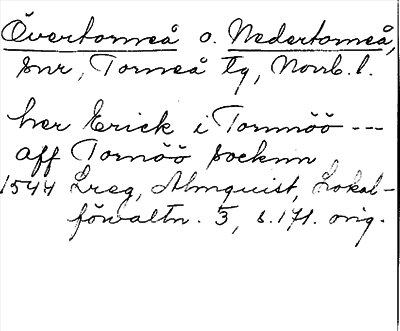 Övertorneå o. Nedertorneå,
snr, Torneå tg, Norrb. l.
her Erick i Tornnöö ---
aff Tornöö socknn
1544 Lreg, Almquist, Lokal-
förvaltn. 3, s. 171. orig.